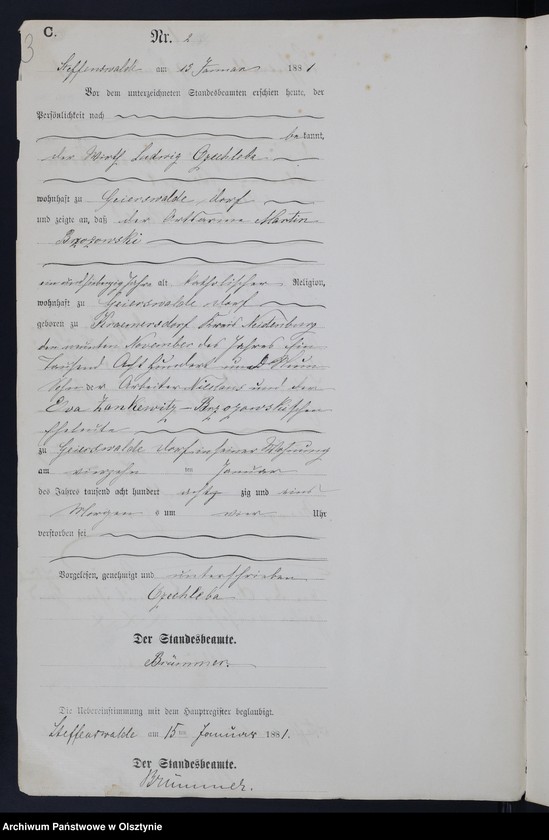 3
C.
Nr. 2
Steffenswalde am 15 Januar 1881.
Vor dem unterzeichneten Standesbeamten erschien heute, der
Persönlichkeit nach
bekannt,
der Wirth Ludwig Czechleba
wohnhaft zu Geierswalde Dorf
und zeigte an, daß der Ortsarme Martin
Brzozowski
ein und siebenzig Jahre alt katholischer Religion,
wohnhaft zu Geierswalde Dorf
geboren zu Kraemersdorf Kreis Neidenburg
den neunten November des Jahres Ein
Tausend Acht Hundert und Neun
Sohn der Arbeiter Nicolaus und der
Eva Zankewitz-Brzozowskischen
Eheleute
zu Geierswalde Dorf in seiner Wohnung
am vierzehn ten Januar
des Jahres tausend acht hundert acht zig und eins
Morgens um vier Uhr
verstorben sei
Vorgelesen, genehmigt und unterschrieben
Czechleba
Der Standesbeamte.
Brümmer.
Die Uebereinstimmung mit dem Hauptregister beglaubigt.
Steffenswalde am 15 ten Januar 1881.
Der Standesbeamte.
Brümmer.
Archiwum Państwowe w Olsztynie